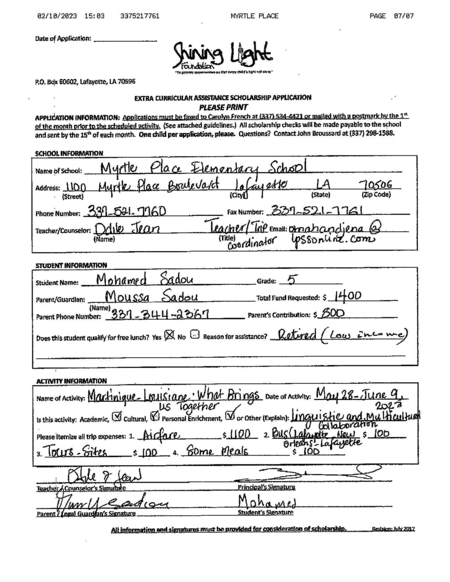 02/10/2023 15:03 3375217761 MYRTLE PLACE PAGE 07/07
Date of Application:
Shining Light
Foundation
P.O. Box 60602, Lafayette, LA 70596
EXTRA CURRICULAR ASSISTANCE SCHOLARSHIP APPLICATION
PLEASE PRINT
APPLICATION INFORMATION: Applications must be faxed to Carolyn French at (337) 534-4421 or mailed with a postmark by the 1st
of the month prior to the scheduled activity. (See attached guidelines.) All scholarship checks will be made payable to the school
and sent by the 15th of each month. One child per application, please. Questions? Contact John Broussard at (337) 298-1588.
SCHOOL INFORMATION
Name of School: Myrtle Place Elementary School
Address: 1100 Myrtle Place Boulevard Lafayette LA 70506
(Street) (City) (State) (Zip Code)
Phone Number: 337-521-7760 Fax Number: 337-521-7761
Teacher/Counselor: Odile Jean Teacher/Trip Email:
(Name) (Title) Coordinator lpssonline.com
STUDENT INFORMATION
Student Name: Mohamed Sadou Grade: 5
Parent/Guardian: Moussa Sadou Total Fund Requested: $ 1400
(Name)
Parent Phone Number: 337-344-2367 Parent's Contribution: $ 500
Does this student qualify for free lunch? Yes No Reason for assistance? Retired (Low income)
ACTIVITY INFORMATION
Name of Activity: Martinique-Louisiane: What Brings Date of Activity: May 28-June 9,
us Together 2023
Is this activity: Academic, Cultural, Personal Enrichment, or Other (Explain): Linguistic and Multicultural
Collaboration
Please itemize all trip expenses: 1. Airfare $ 1100 2. Bus (Lafayette New $ 100
Orleans-Lafayette
3. Tours-Sites $ 100 4. Some Meals $ 100
Odile J Jean
Teacher/Counselor's Signature Principal's Signature
Mohamed
Parent/Legal Guardian's Signature Student's Signature
All information and signatures must be provided for consideration of scholarship. Revision: July 2017